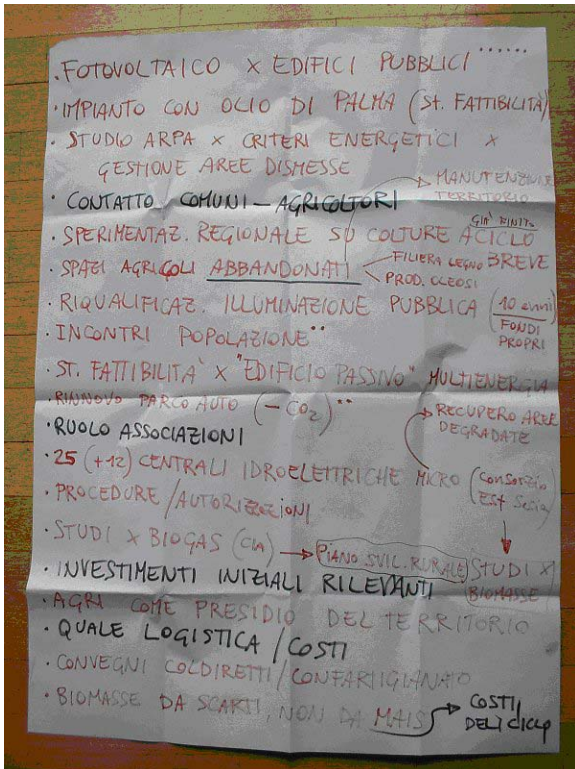 ......
· FOTOVOLTAICO X EDIFICI PUBBLICI
· IMPIANTO CON OLIO DI PALMA (St. FATTIBILITÀ)
· STUDIO ARPA X CRITERI ENERGETICI X
GESTIONE AREE DISMESSE
→ MANUTENZIONE
TERRITORIO
· CONTATTO COMUNI – AGRICOLTORI
GIA' FINITO
· SPERIMENTAZ. REGIONALE SU COLTURE A CICLO
BREVE
· SPAZI AGRICOLI ABBANDONATI
FILIERA LEGNO
PROD. OLEOSI
· RIQUALIFICAZ. ILLUMINAZIONE PUBBLICA (10 anni)
FONDI
PROPRI
· INCONTRI POPOLAZIONE ··
· ST. FATTIBILITA' X "EDIFICIO PASSIVO" MULTIENERGIA
· RINNOVO PARCO AUTO (– CO2) ··
→ RECUPERO AREE
DEGRADATE
· RUOLO ASSOCIAZIONI
· 25 (+12) CENTRALI IDROELETTRICHE MICRO (Consorzio
Est Sesia)
· PROCEDURE / AUTORIZZAZIONI
· STUDI X BIOGAS (CIA) → PIANO SVIL. RURALE
STUDI X
BIOMASSE
· INVESTIMENTI INIZIALI RILEVANTI
· AGRI COME PRESIDIO DEL TERRITORIO
· QUALE LOGISTICA / COSTI
· CONVEGNI COLDIRETTI / CONFARTIGIANATO
· BIOMASSE DA SCARTI, NON DA MAIS → COSTI
DEL CICLO